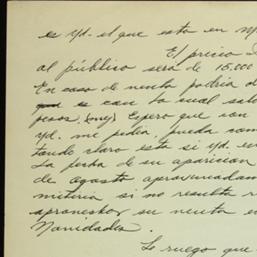 es Yd. el que esta en M
El precio
al público sera de 15.000
En caso de venta podria d
es con lo cual sal
pesos. (m/n) Espero que con
Yd. me pedia, pueda com
tando claro esta si yd. es
La fecha de su aparicion
de agosto aproximadam
mitiria si no resulta
aprovechar su venta en
Navidades.
Le ruego que